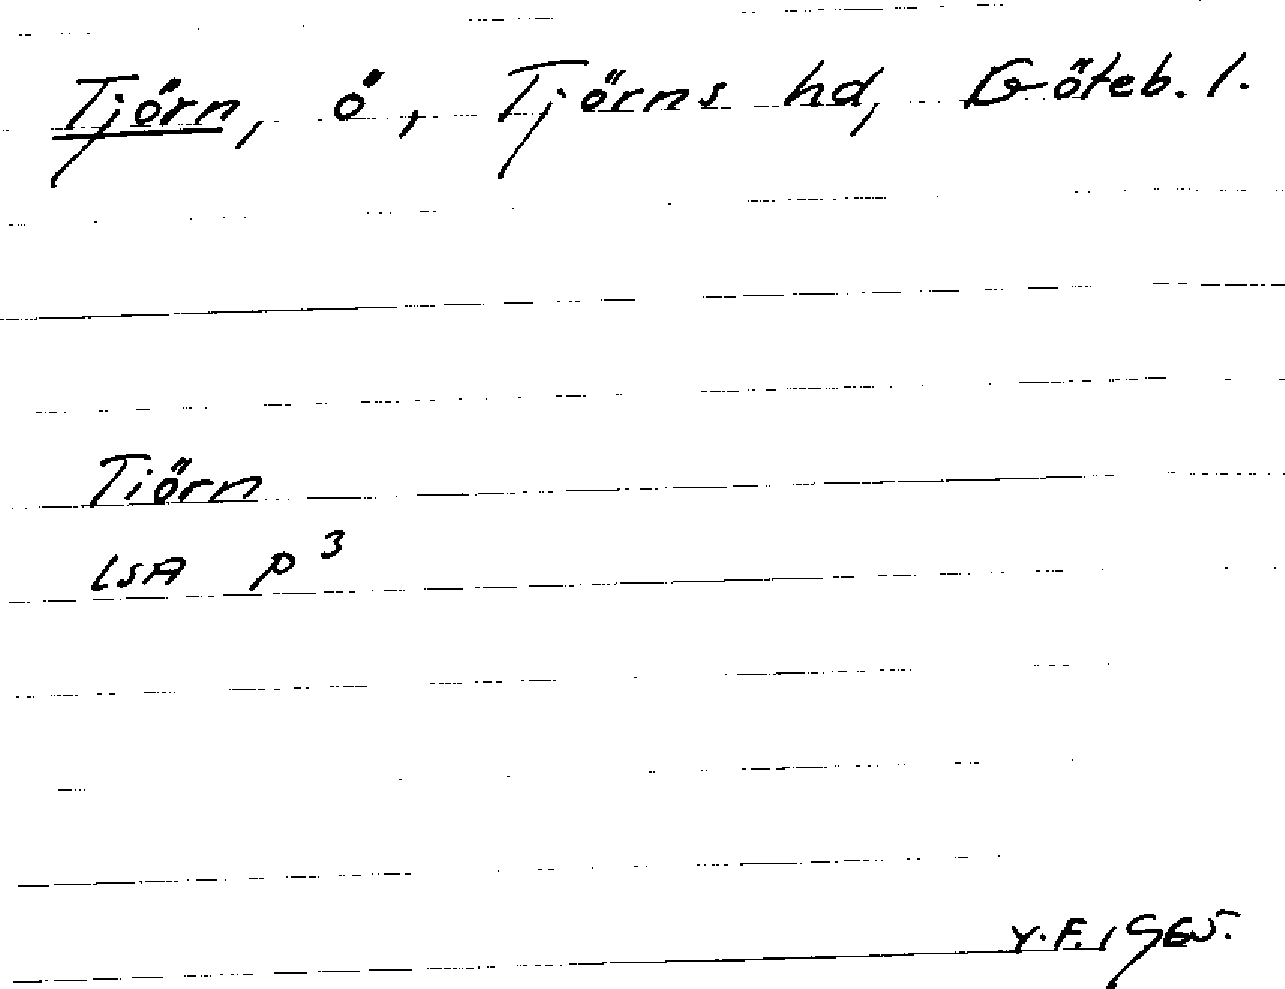 Tjörn, ö, Tjörns hd, Göteb. l.
Tiörn
LSA p 3
Y.F. 1965.